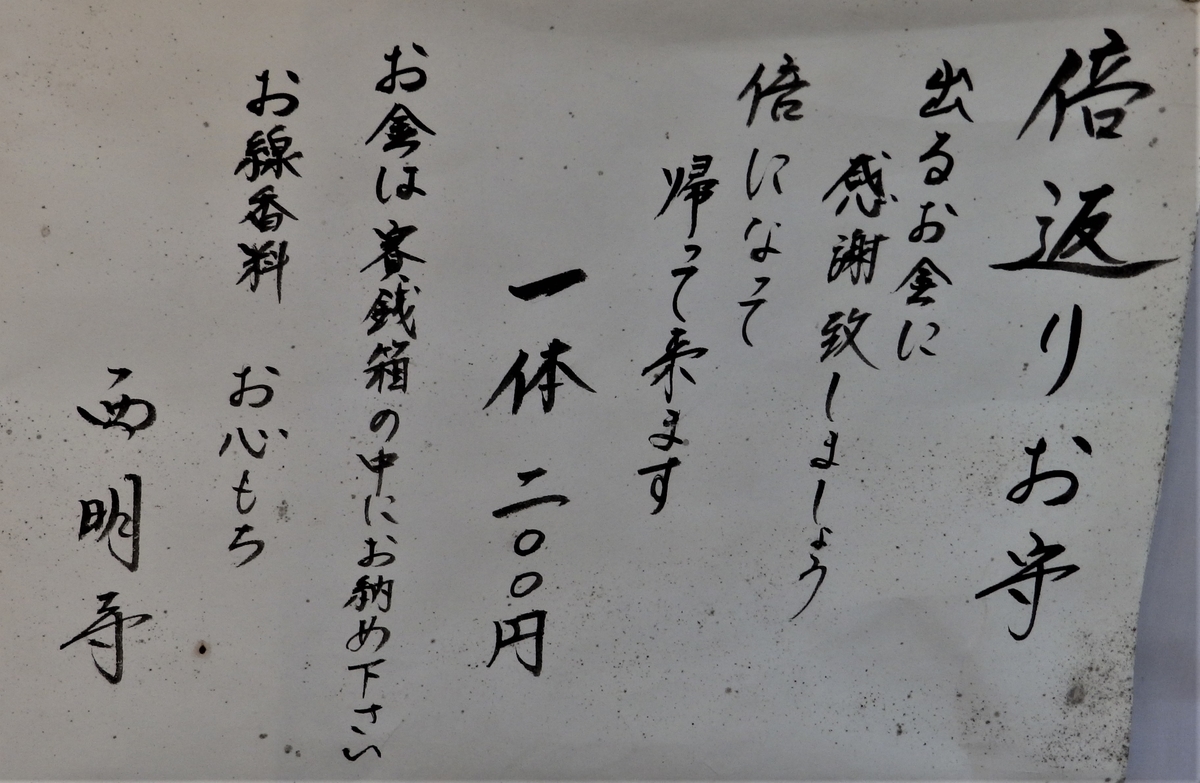 倍返りお守
出るお金に
感謝致しましょう
倍になって
帰って来ます
一体 二〇〇円
お金は賽銭箱の中にお納め下さい
お線香料 お心もち
西明寺